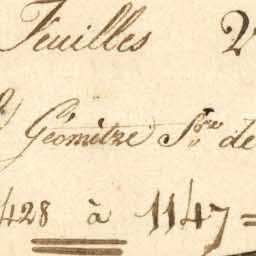 Feuilles 2
Géomètre S.re de
428 à 1147 =